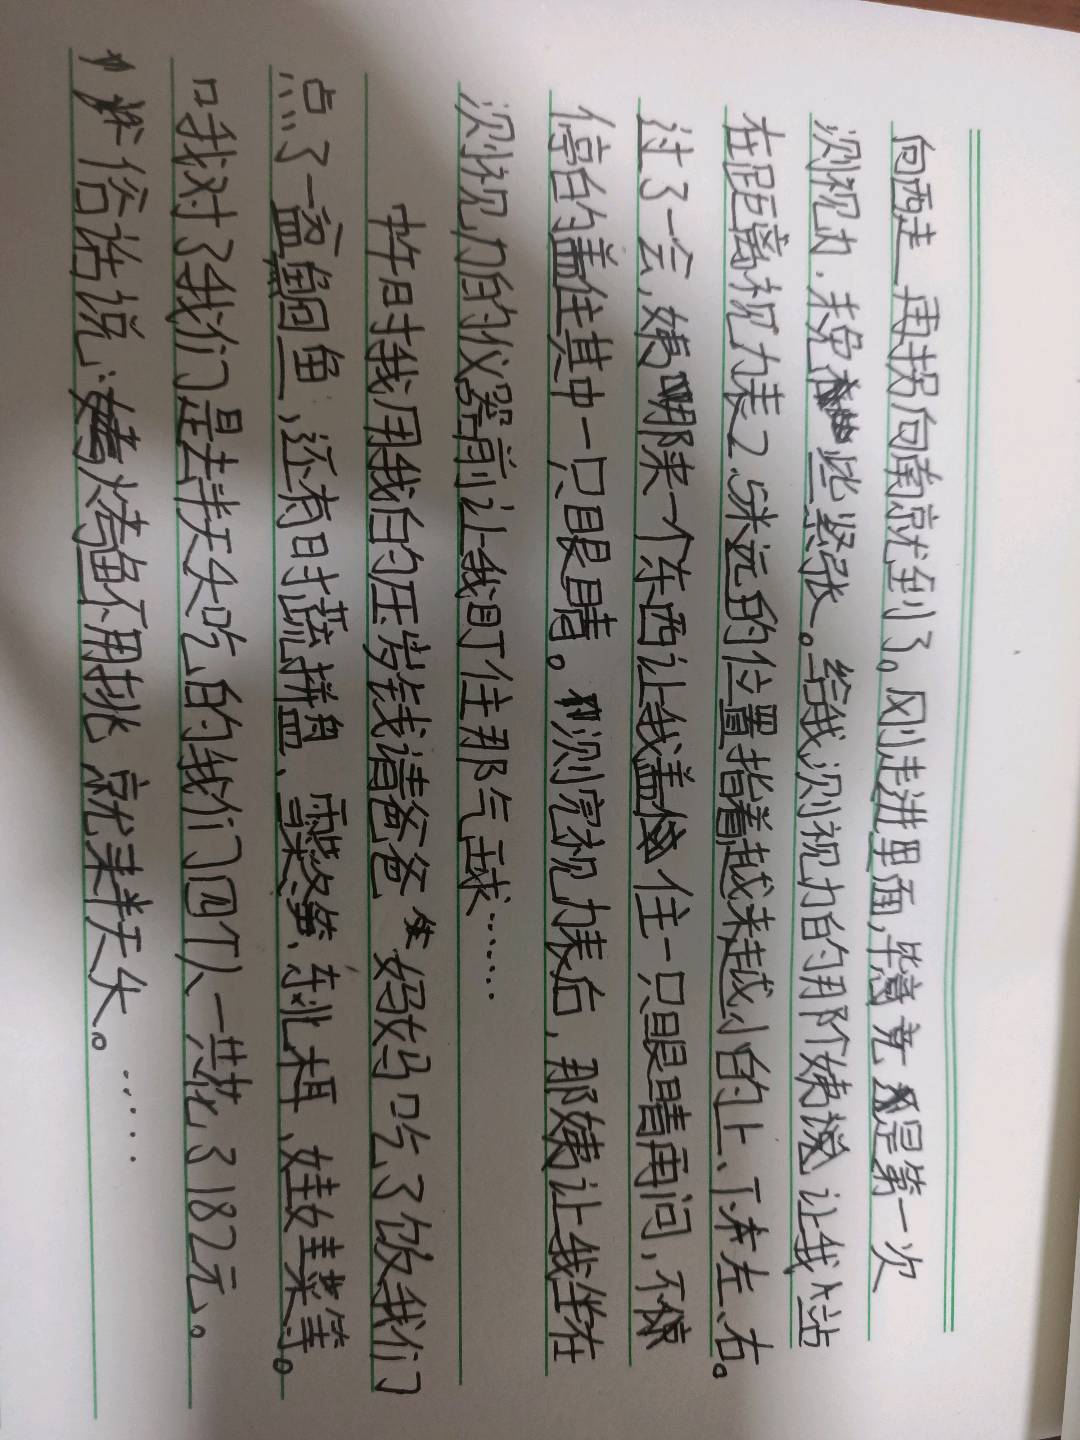 向西走,再拐向南就到了。刚走进里面,毕竟是第一次
测视力,未免些紧张。给我测视力的那个姨说让我站
在距离视力表2.5米远的位置指着越来越小的上、下、左、右。
过了一会,姨拿来一个东西让我盖住一只眼睛再问,不
停的盖住其中一只眼睛。测完视力表后,那姨让我坐在
测视力的仪器前让我盯住那气球……
中午时我用我的压岁钱请爸爸妈妈吃了饭我们
点了一盆鱼,还有时蔬拼盘、木耳、娃娃菜等。
口我对了我们是去吃的我们四个人一共花了182元。
爸说:烤鱼不用挑就